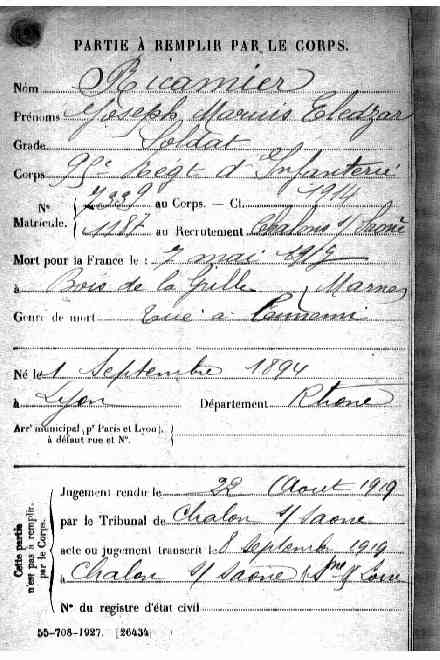 PARTIE À REMPLIR PAR LE CORPS.
Nom Ricamier
Prénoms Joseph Marius Eléazar
Grade Soldat
Corps Régt d'Infanterie
N° 7339 au Corps. — Cl. 1914
Matricule. 1187 au Recrutement Chalons s/ Saône
Mort pour la France le : 7 mai 1917
à Bois de la Grille (Marne)
Genre de mort Tué à l'ennemi
Né le 1 Septembre 1894
à Lyon Département Rhône
Arrt municipal (pr Paris et Lyon),
à défaut rue et N°.
Cette partie
n'est pas à remplir
par le Corps.
Jugement rendu le 22 Aout 1919
par le Tribunal de Chalon s/ Saone
acte ou jugement transcrit le 8 septembre 1919
à Chalon s/ Saône (Sne & Loire
N° du registre d'état civil
55-708-1927. [26434]